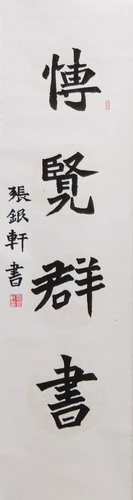 愽覽群書
張銀軒書